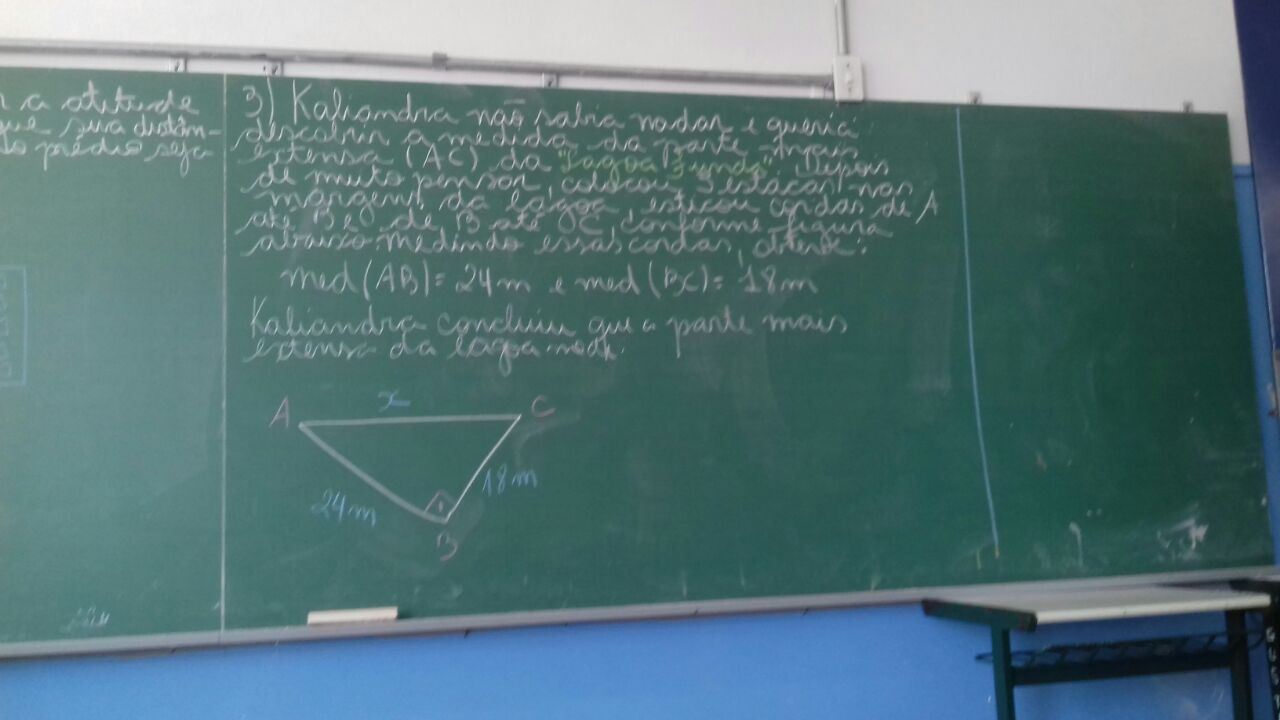 a atitude
que sua distân-
do prédio seja
3) Kaliandra não sabia nadar e queria
descobrir a medida da parte mais
extensa (AC) da "Lagoa Funda". Depois
de muito pensar, colocou 3 estacas nas
margens da lagoa, esticou cordas de A
até B e de B até C, conforme figura
abaixo. Medindo essas cordas, obteve:
med(AB)= 24m e med(BC)= 18m
Kaliandra concluiu que a parte mais
extensa da lagoa mede:
A x C
24m 18m
B